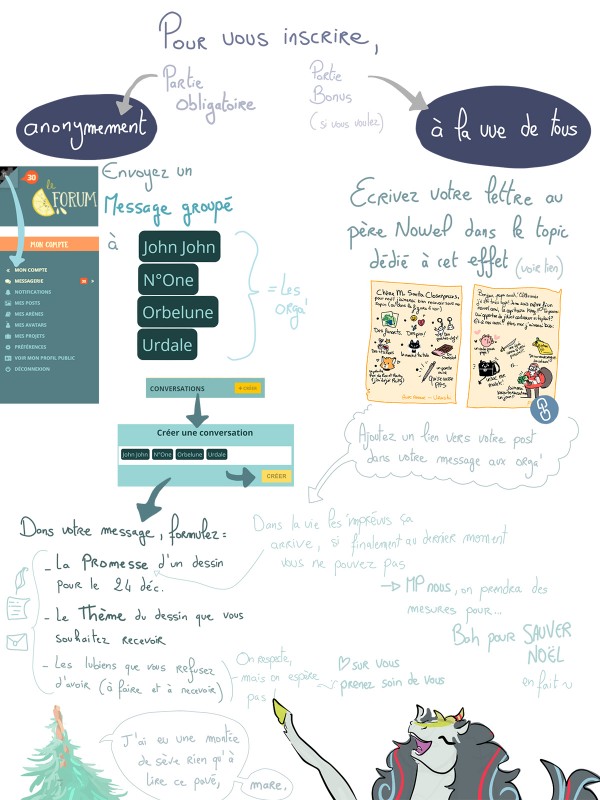 Pour vous inscrire,
Partie
Obligatoire
Partie
Bonus
(si vous voulez)
anonymement
à la vue de tous
Envoyez un
Message groupé
à
John John
N°One
Orbelune
Urdale
= Les
orga'
30
le
FORUM
MON COMPTE
MON COMPTE
MESSAGERIE
NOTIFICATIONS
MES POSTS
MES ARÈNES
MES AVATARS
MES PROJETS
PRÉFÉRENCES
VOIR MON PROFIL PUBLIC
DÉCONNEXION
CONVERSATIONS
+ CRÉER
Créer une conversation
John John
N°One
Orbelune
Urdale
CRÉER
Ecrivez votre lettre au
père Nowel dans le topic
dédié à cet effet (voir lien)
Ajoutez un lien vers votre post
dans votre message aux orga'
Dans votre message, formulez :
- La Promesse d'un dessin
pour le 24 déc.
- Le Thème du dessin que vous
souhaitez recevoir
- Les lubiens que vous refusez
d'avoir (à faire et à recevoir)
On respecte,
mais on espère
pas
♡ sur vous
prenez soin de vous
Dans la vie les imprévus ça
arrive, si finalement au dernier moment
vous ne pouvez pas
→ MP nous, on prendra des
mesures pour...
Bah pour SAUVER
NOËL
en fait ~
J'ai eu une montée
de sève rien qu'à
lire ce pavé,
mare.